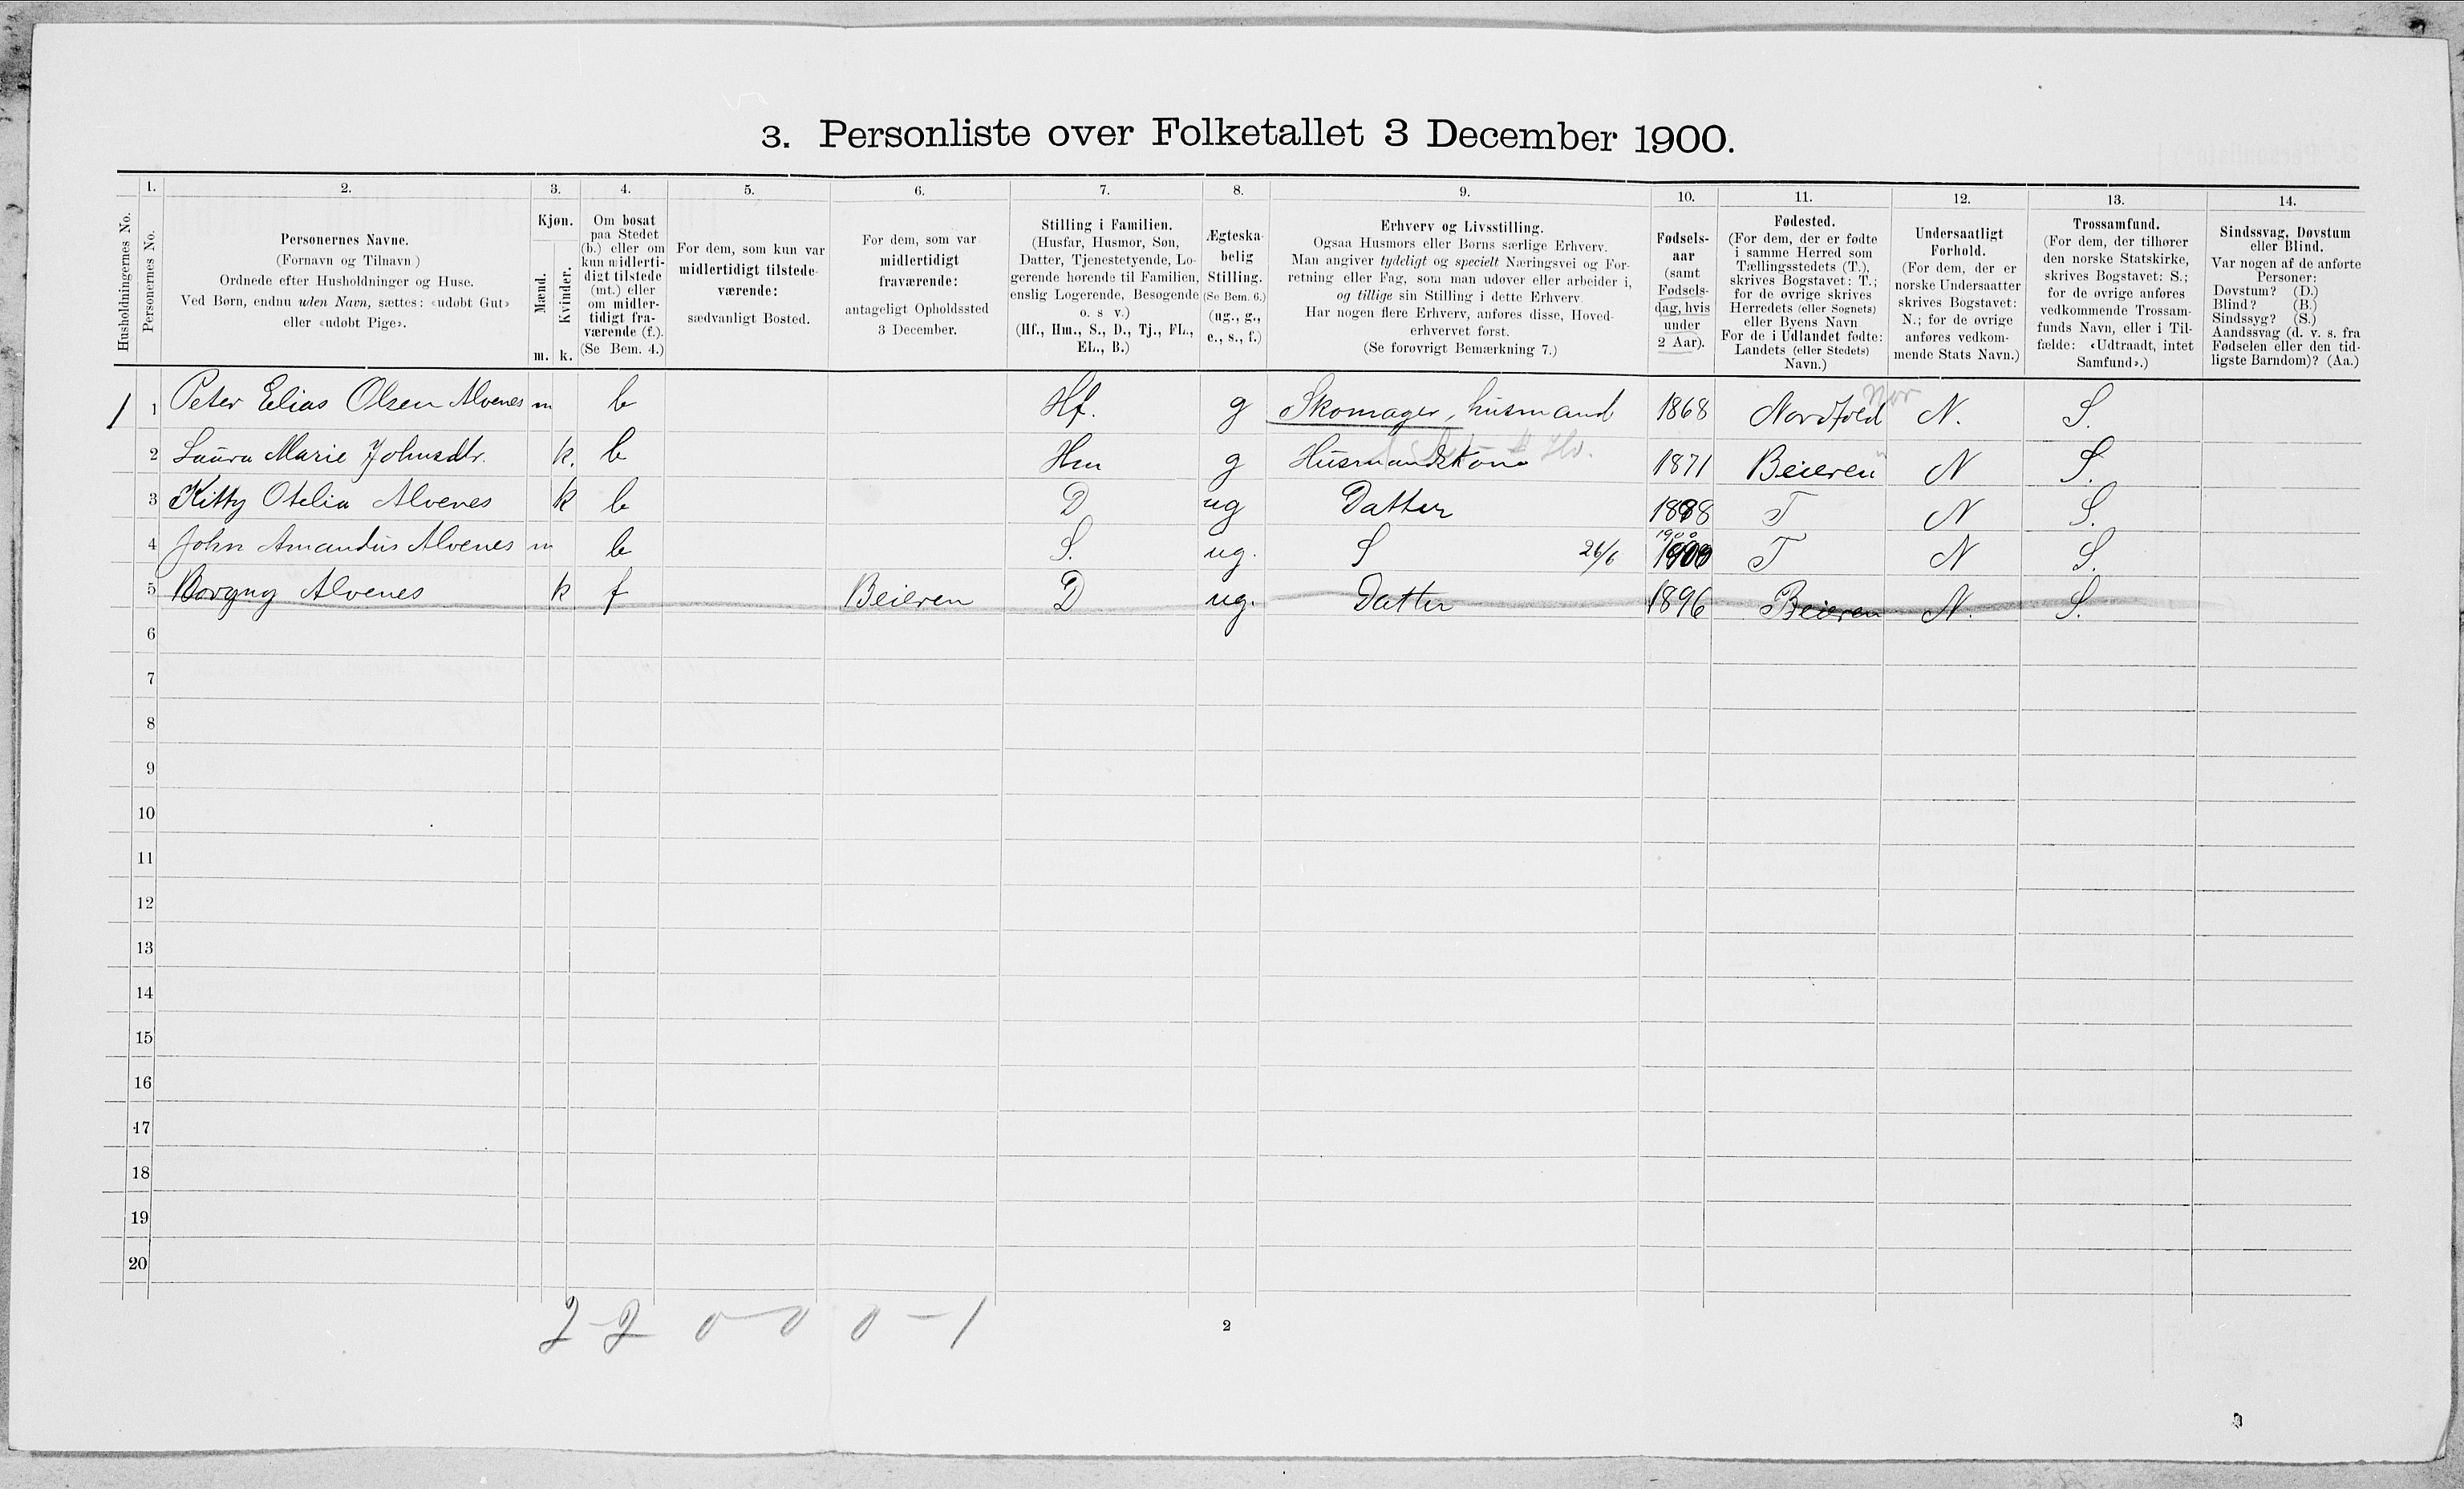 3. Personliste over Folketallet 3 December 1900.
1. 2. 3. 4. 5. 6. 7. 8. 9. 10. 11. 12. 13. 14.
Husholdningernes No.
Personernes No.
Personernes Navne.
(Fornavn og Tilnavn)
Ordnede efter Husholdninger og Huse.
Ved Børn, endnu uden Navn, sættes: «udøbt Gut»
eller «udøbt Pige».
Kjøn.
Mænd.
Kvinder.
m. k.
Om bosat
paa Stedet
(b.) eller om
kun midlerti-
digt tilstede
(mt.) eller
om midler-
tidigt fra-
værende (f.).
(Se Bem. 4.)
For dem, som kun var
midlertidigt tilstede-
værende:
sædvanligt Bosted.
For dem, som var
midlertidigt
fraværende:
antageligt Opholdssted
3 December.
Stilling i Familien.
(Husfar, Husmor, Søn,
Datter, Tjenestetyende, Lo-
gerende hørende til Familien,
enslig Logerende, Besøgende
o. s v.)
(Hf., Hm., S., D., Tj., FL.,
EL., B.)
Ægteska-
belig
Stilling.
(Se Bem. 6.)
(ug., g.,
e., s., f.)
Erhverv og Livsstilling.
Ogsaa Husmors eller Børns særlige Erhverv.
Man angiver tydeligt og specielt Næringsvei og For-
retning eller Fag, som man udøver eller arbeider i,
og tillige sin Stilling i dette Erhverv.
Har nogen flere Erhverv, anføres disse, Hoved-
erhvervet først.
(Se forøvrigt Bemærkning 7.)
Fødsels-
aar
(samt
Fødsels-
dag, hvis
under
2 Aar).
Fødested.
(For dem, der er fødte
i samme Herred som
Tællingsstedets (T.),
skrives Bogstavet: T.;
for de øvrige skrives
Herredets (eller Sognets)
eller Byens Navn
For de i Udlandet fødte:
Landets (eller Stedets)
Navn.)
Undersaatligt
Forhold.
(For dem, der er
norske Undersaatter
skrives Bogstavet:
N.; for de øvrige
anføres vedkom-
mende Stats Navn.)
Trossamfund.
(For dem, der tilhører
den norske Statskirke,
skrives Bogstavet: S.;
for de øvrige anføres
vedkommende Trossam-
funds Navn, eller i Til-
fælde: «Udtraadt, intet
Samfund».)
Sindssvag, Døvstum
eller Blind.
Var nogen af de anførte
Personer:
Døvstum? (D.)
Blind? (B.)
Sindssyg? (S.)
Aandssvag (d. v. s. fra
Fødselen eller den tid-
ligste Barndom)? (Aa.)
1 1 Peter Elias Olsen Alvenes m b Hf. g Skomager, husmand 1868 Nordfold N. S.
2 Laura Marie Johnsdtr. k. b Hm g Husmandskone 1871 Beieren N S.
3 Kitty Otelia Alvenes k b D ug Datter 1898 T N S.
4 John Amandus Alvenes m b S. ug. S 26/6 1900 T N S.
5 Borgny Alvenes k f Beieren D ug. Datter 1896 Beieren N. S.
6
7
8
9
10
11
12
13
14
15
16
17
18
19
20
2-2 0-0 0-1
2